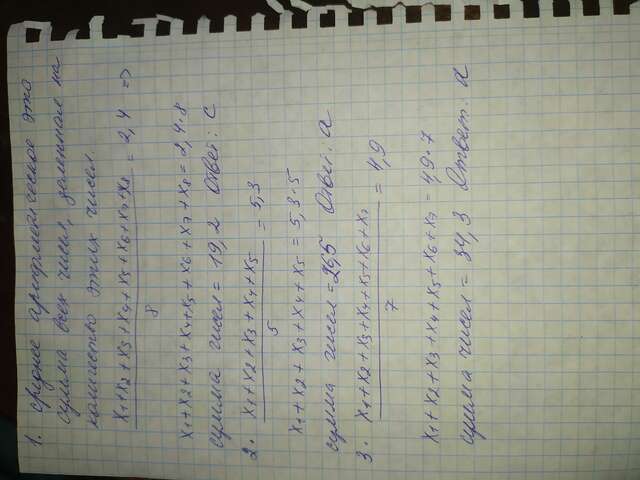 1. среднее арифметическое это
сумма всех чисел, деленное на
количество этих чисел.
x1+x2+x3+x4+x5+x6+x7+x8 = 2,4 =>
8
x1+x2+x3+x4+x5+x6+x7+x8=2,4·8
сумма чисел = 19,2 Ответ: с
2. x1+x2+x3+x4+x5 = 5,3
5
x1+x2+x3+x4+x5=5,3·5
сумма чисел=26,5 Ответ: а
3. x1+x2+x3+x4+x5+x6+x7 = 4,9
7
x1+x2+x3+x4+x5+x6+x7=4,9·7
сумма чисел = 34,3 Ответ: а